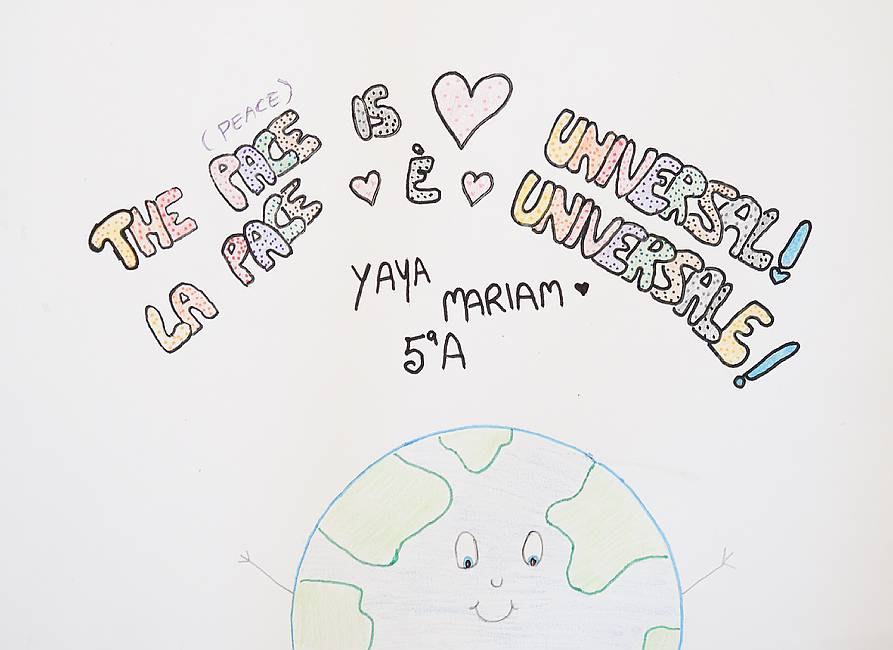 (PEACE)
THE PACE IS UNIVERSAL!
LA PACE È UNIVERSALE!
YAYA MARIAM
5ªA